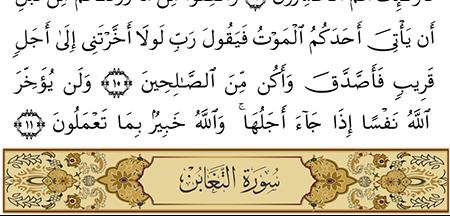 أَن يَأْتِىَ أَحَدَكُمُ ٱلْمَوْتُ فَيَقُولَ رَبِّ لَوْلَآ أَخَّرْتَنِىٓ إِلَىٰٓ أَجَلٍ
قَرِيبٍ فَأَصَّدَّقَ وَأَكُن مِّنَ ٱلصَّٰلِحِينَ ١٠ وَلَن يُؤَخِّرَ
ٱللَّهُ نَفْسًا إِذَا جَآءَ أَجَلُهَا ۚ وَٱللَّهُ خَبِيرٌۢ بِمَا تَعْمَلُونَ ١١
سُورَةُ التَّغَابُنِ